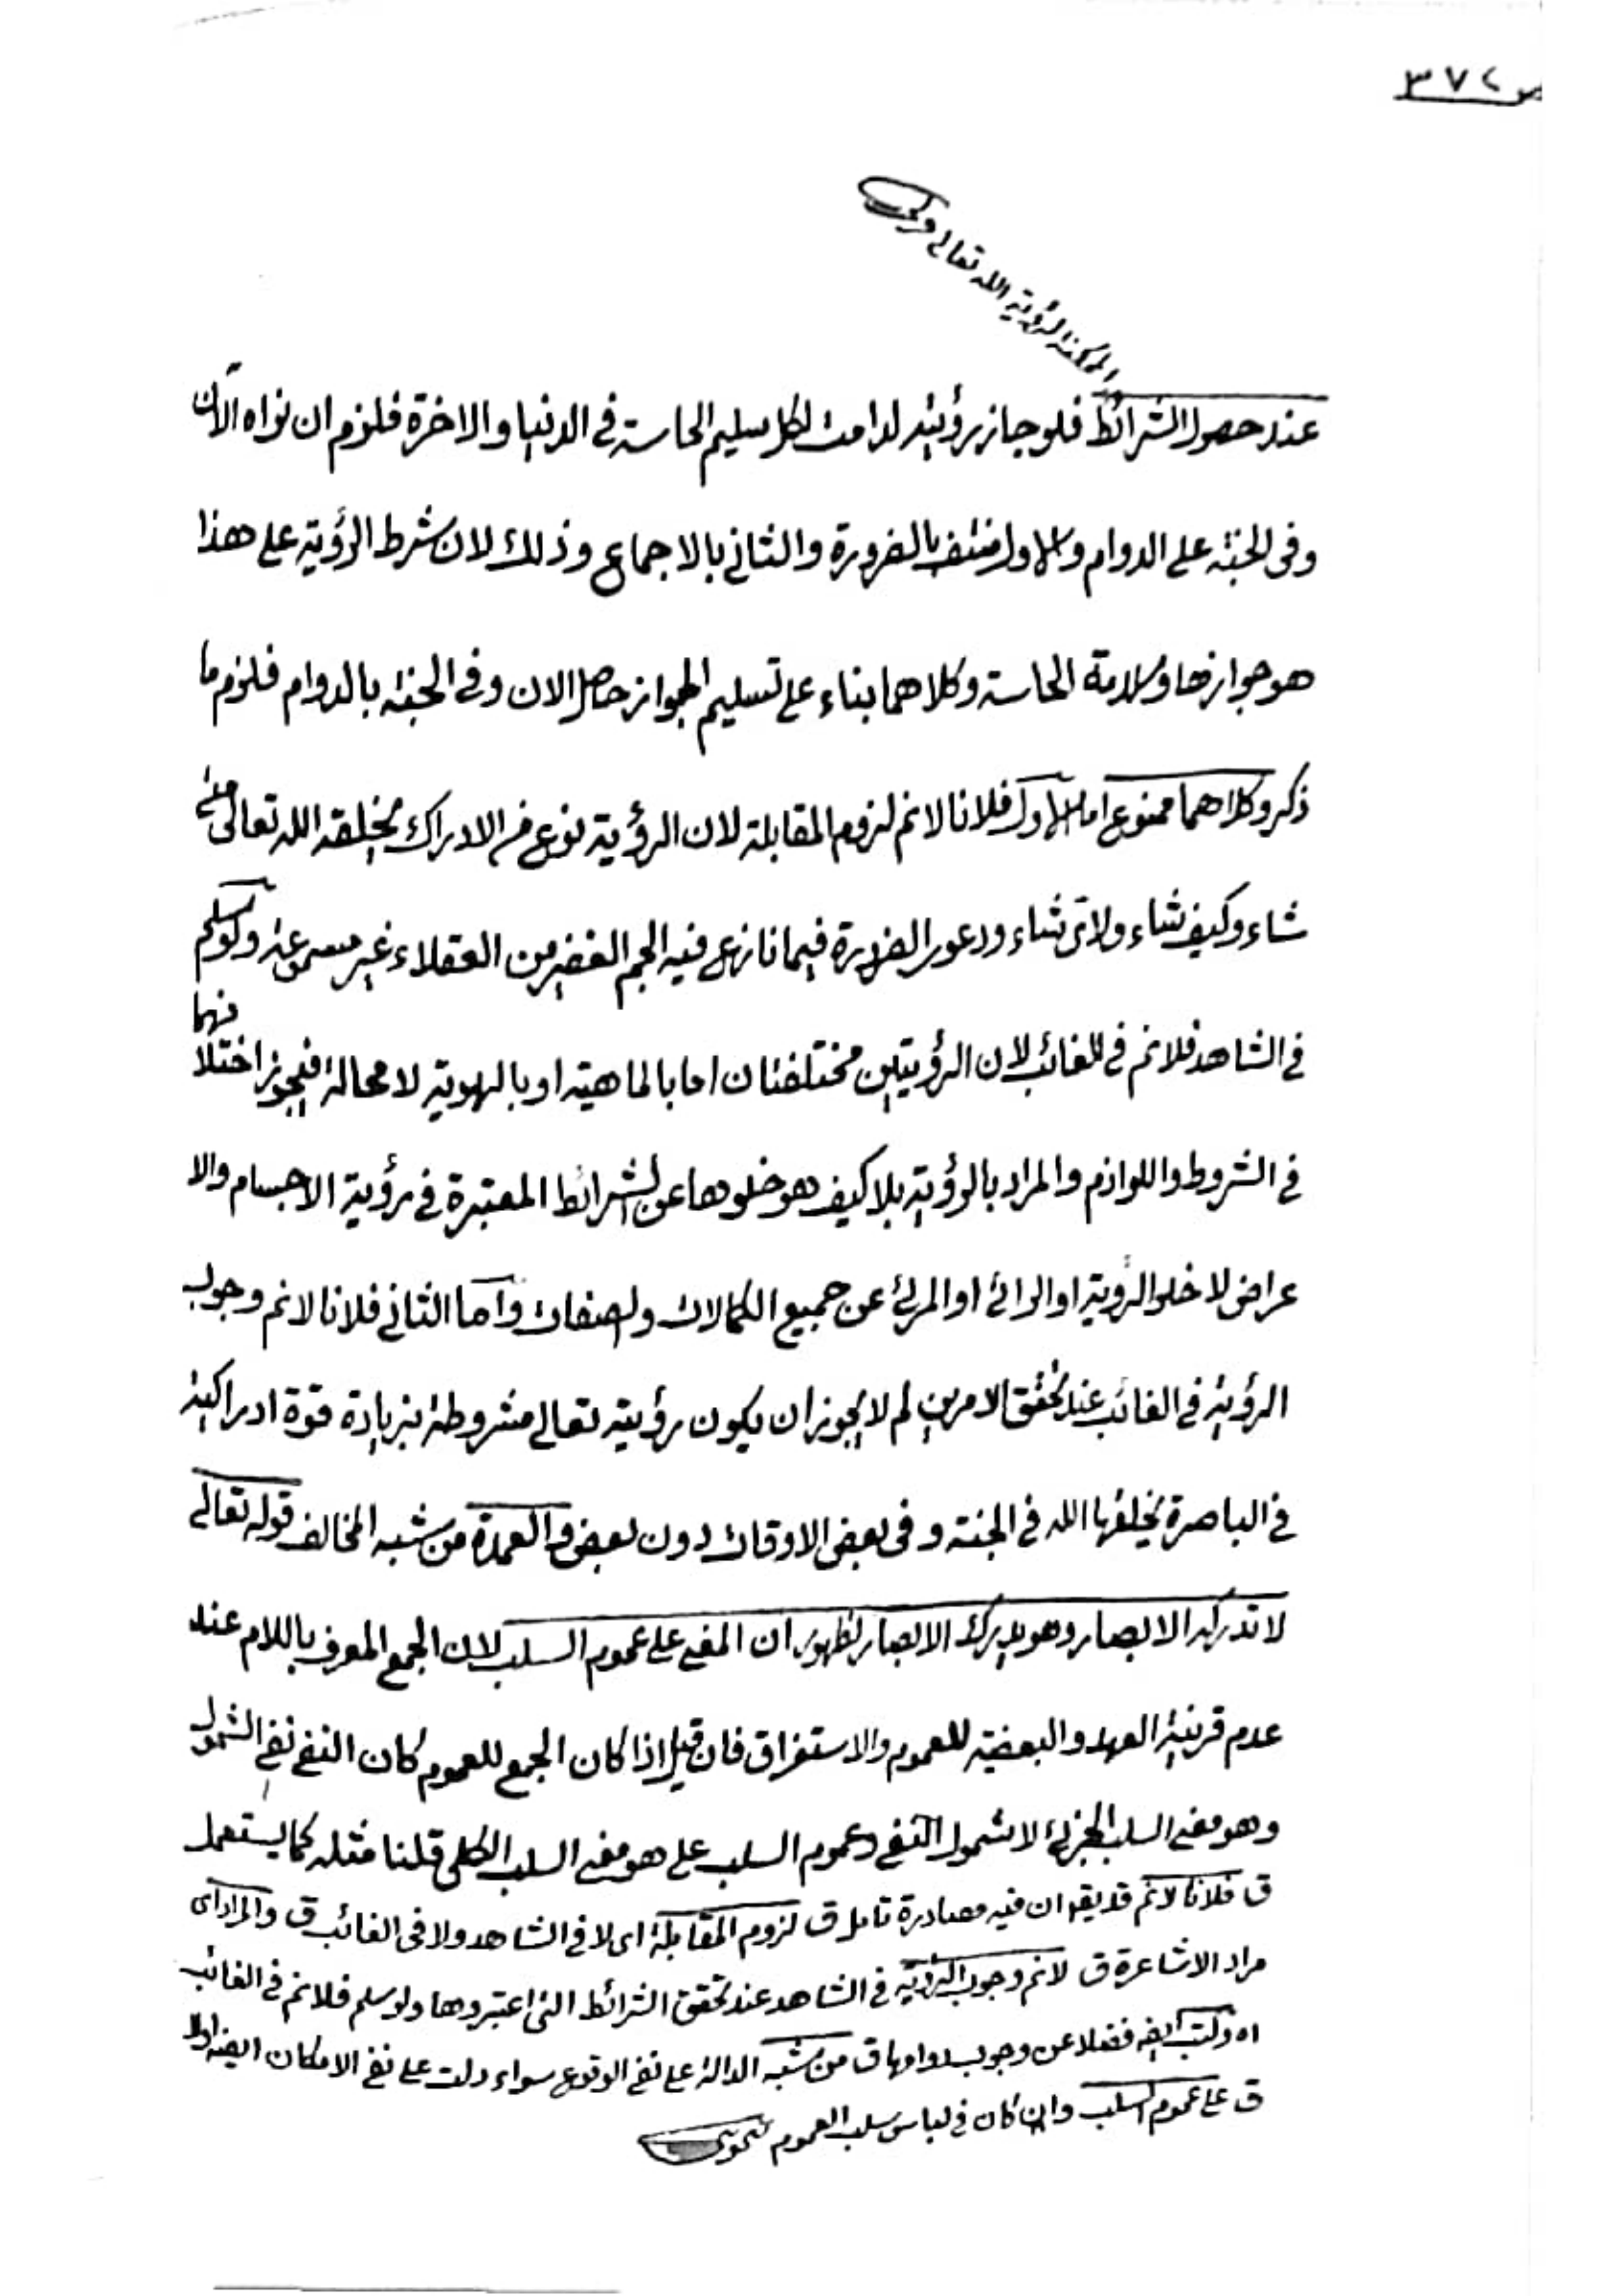 ص ٣٧٢
الممكنة لرؤية الله تعالى
عند حصول الشرائط فلو جاز رؤيته لدامت لكل سليم الحاسة في الدنيا والاخرة فلزم ان نراه الآن
وفى الجنة على الدوام والاول منتف بالضرورة والثاني بالاجماع وذلك لان شرط الرؤية على هذا
هو جوازها وسلامة الحاسة وكلاهما بناء على تسليم الجواز حاصل الان وفى الجنة بالدوام فلزم ما
ذكر وكلاهما ممنوع اما الاول فلانا لانم لزوم المقابلة لان الرؤية نوع من الادراك يخلقه الله تعالى متى
شاء وكيف شاء ولاى شاء ودعوى الضرورة فيما نازع فيه الجم الغفير من العقلاء غير مسموعة ولو سلم
في الشاهد فلانم في الغائب لان الرؤيتين مختلفتان اما بالماهية او بالهوية لا محالة فيجوز اختلافهما
في الشروط واللوازم والمراد بالرؤية بلا كيف هو خلوها عن الشرائط المعتبرة في رؤية الاجسام والا
عراض لا خلو الرؤية او الرائى او المرئى عن جميع الكمالات والصفات واما الثاني فلانا لانم وجوب
الرؤية في الغائب عند تحقق الامرين لم لا يجوز ان يكون رؤيته تعالى مشروطة بزيادة قوة ادراكية
في الباصرة يخلقها الله في الجنة وفى بعض الاوقات دون بعض والعمدة من شبه المخالف قوله تعالى
لا تدركه الابصار وهو يدرك الابصار لظهور ان المعنى على عموم السلب لان الجمع المعرف باللام عند
عدم قرينة العهد والبعضية للعموم والاستغراق فان قيل اذا كان الجمع للعموم كان النفى نفى الشمول
وهو معنى السلب الجزئى لا شمول النفى وعموم السلب على هو معنى السلب الكلى قلنا مثله كما يستعمل
ق فلانا لانم قد يقر ان فيه مصادرة تامل ق لزوم المقابلة اى لا في الشاهد ولا فى الغائب ق والمراد اى
مراد الاشاعرة ق لانم وجوب الرؤية في الشاهد عند تحقق الشرائط التى اعتبروها ولو سلم فلانم في الغائب
فضلا عن وجوب دوامها ق من شبه الدالة على نفى الوقوع سواء دلت على نفى الامكان ايضا
ق على عموم السلب وان كان في لباس سلب العموم